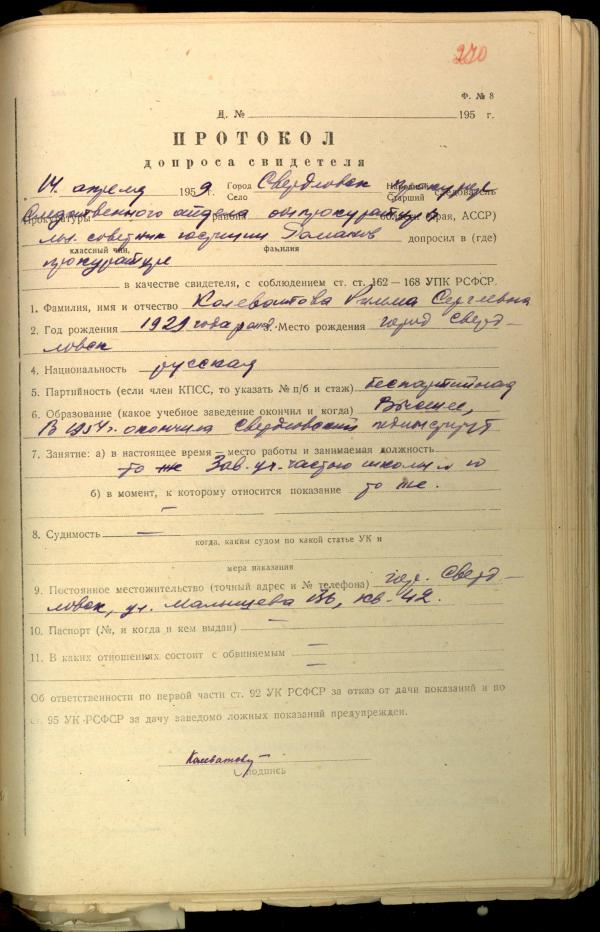 270
Ф. № 8
Д. № 195 г.
ПРОТОКОЛ
допроса свидетеля
14 апреля 1959 Город Свердловск Народный прокурор следователь
Село Старший
Прокуратуры Следственного отдела района облпрокуратуры области (края, АССР)
мл. советник юстиции Романов допросил в (где)
классный чин, фамилия
прокуратуре
в качестве свидетеля, с соблюдением ст. ст. 162—168 УПК РСФСР.
1. Фамилия, имя и отчество Колеватова Римма Сергеевна
2. Год рождения 1929 года рожд. Место рождения город Сверд-
ловск
4. Национальность русская
5. Партийность (если член КПСС, то указать № п/б и стаж) беспартийная
6. Образование (какое учебное заведение окончил и когда) Высшее,
В 1954 г. окончила Свердловский пединститут
7. Занятие: а) в настоящее время — место работы и занимаемая должность
то же Зав. уч. частью школы № 10
б) в момент, к которому относится показание то же.
—
8. Судимость —
когда, каким судом по какой статье УК и
мера наказания
9. Постоянное местожительство (точный адрес и № телефона) гор. Сверд-
ловск, ул. Малышева кв. 42.
10. Паспорт (№, и когда и кем выдан) —
11. В каких отношениях состоит с обвиняемым —
—
Об ответственности по первой части ст. 92 УК РСФСР за отказ от дачи показаний и по
ст. 95 УК РСФСР за дачу заведомо ложных показаний предупрежден.
Колеватова
подпись